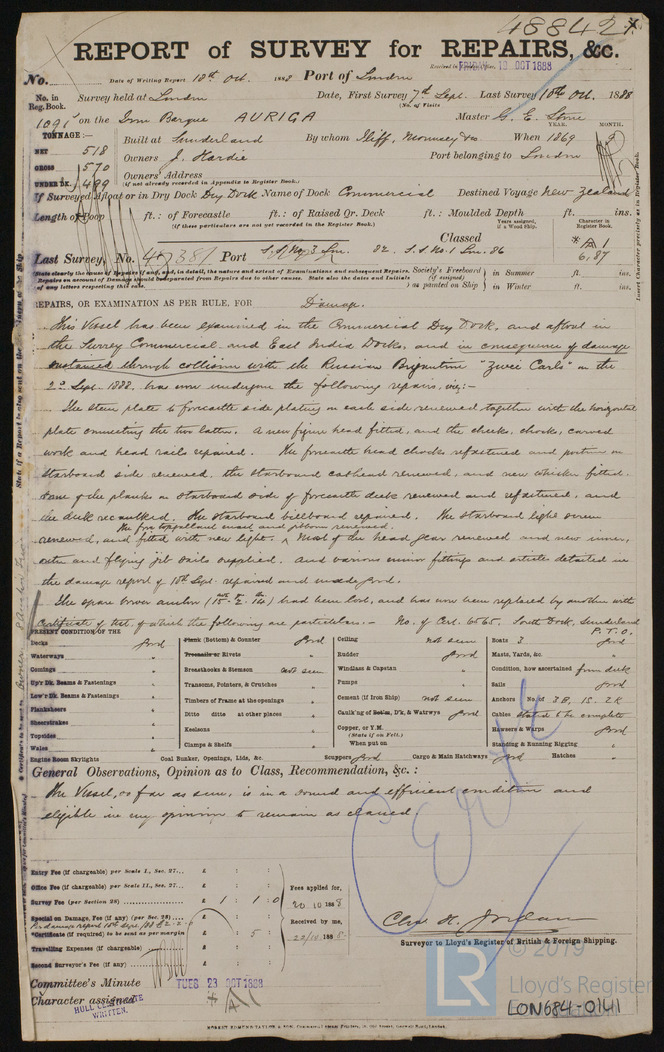 48842
REPORT of SURVEY for REPAIRS, &c.
FRIDAY 19 OCT 1888
No. Date of Writing Report 18th Oct. 1888 Port of London
No. in Reg. Book. Survey held at London Date, First Survey 7th Sept. Last Survey 10th Oct. 1888
(No. of Visits
on the Iron Barque AURIGA Master G. E. Stone
TONNAGE:— YEAR. MONTH.
NET 518 Built at Sunderland By whom Iliff, Mounsey & Co When 1869
GROSS 570 Owners J. Hardie Port belonging to London
UNDER DK. 499 Owners' Address
(if not already recorded in Appendix to Register Book.)
If Surveyed Afloat or in Dry Dock Dry Dock Name of Dock Commercial Destined Voyage New Zealand
Length of Poop ft.: of Forecastle ft.: of Raised Qr. Deck ft.: Moulded Depth ft. ins.
(If these particulars are not yet recorded in the Register Book.)
Years assigned, if a Wood Ship. Character in Register Book.
Classed
Last Survey, No. Port S.S. No. 3 Lon. 82. S.S. No. 1 Lon. 86
A 1
6.87
State clearly the cause of Repairs if any, and, in detail, the nature and extent of Examinations and subsequent Repairs.
Repairs on account of Damage should be separated from Repairs due to other causes. State also the Dates and Initials of any letters respecting this case.
Society's Freeboard (if assigned) as painted on Ship in Summer ft. ins.
in Winter ft. ins.
REPAIRS, OR EXAMINATION AS PER RULE, FOR Damage.
This Vessel has been examined in the Commercial Dry Dock, and afloat in
the Surrey Commercial and East India Docks, and in consequence of damage
sustained through collision with the Russian Brigantine "Zwei Carls" on the
2nd Sept. 1888, has now undergone the following repairs, viz:—
The stem plate to forecastle side plating on each side renewed together with the horizontal
plate connecting the two latter. A new figure head fitted, and the cheeks, chocks, carved
work and head rails repaired. The forecastle head chocks refastened and portions on
starboard side renewed, the starboard cathead renewed, and new whisker fitted.
Some of the planks on starboard side of forecastle deck renewed and refastened, and
the deck recaulked. The starboard billboard repaired. The starboard light screen
The fore topgallant mast and jibboom renewed.
renewed, and fitted with new light. Most of the head gear renewed and new inner,
outer and flying jib sails supplied. And various minor fittings and articles detailed in
the damage report of 18th Sept. repaired and made good.
The spare bower anchor had been lost, and has now been replaced by another with
certificate of test, of which the following are particulars:— No. of Cert. South Dock, Sunderland
P.T.O.
PRESENT CONDITION OF THE
Decks good
Waterways "
Comings "
Up'r Dk. Beams & Fastenings "
Low'r Dk. Beams & Fastenings "
Planksheers "
Sheerstrakes "
Topsides "
Wales "
Plank (Bottom) & Counter good
Treenails or Rivets "
Breasthooks & Stemson not seen
Transoms, Pointers, & Crutches "
Timbers of Frame at the openings "
Ditto ditto at other places "
Keelsons "
Clamps & Shelfs "
Ceiling not seen
Rudder good
Windlass & Capstan "
Pumps "
Cement (if Iron Ship) not seen
Caulk'ng of Bottm, D'k, & Watrwys good
Copper, or Y.M. (State if on Felt.)
When put on
Boats 3 good
Masts, Yards, &c. "
Condition, how ascertained from deck
Sails good
Anchors No. of 3 B, 1 S, 2 K
Cables stated to be complete
Hawsers & Warps good
Standing & Running Rigging "
Engine Room Skylights Coal Bunker, Openings, Lids, &c. Scuppers good Cargo & Main Hatchways good Hatches "
General Observations, Opinion as to Class, Recommendation, &c.:
The Vessel, so far as seen, is in a sound and efficient condition and
eligible in my opinion to remain as classed.
Entry Fee (if chargeable) per Scale I., Sec. 27... £ : :
Office Fee (if chargeable) per Scale II., Sec. 27... £ : :
Survey Fee (per Section 28) £ 1 : 1 : 0
Special on Damage, Fee (if any) (per Sec. 28)
Certificate (if required) to be sent as per margin 5
Travelling Expenses (if chargeable) £ : :
Second Surveyor's Fee (if any) £ : :
Fees applied for,
20.10.1888
Received by me,
22/10 188
Surveyor to Lloyd's Register of British & Foreign Shipping.
Committee's Minute TUES 23 OCT 1888
Character assigned A 1
HULL CERTIFICATE WRITTEN.
© 2019
LR
Lloyd's Register
LON684-0141